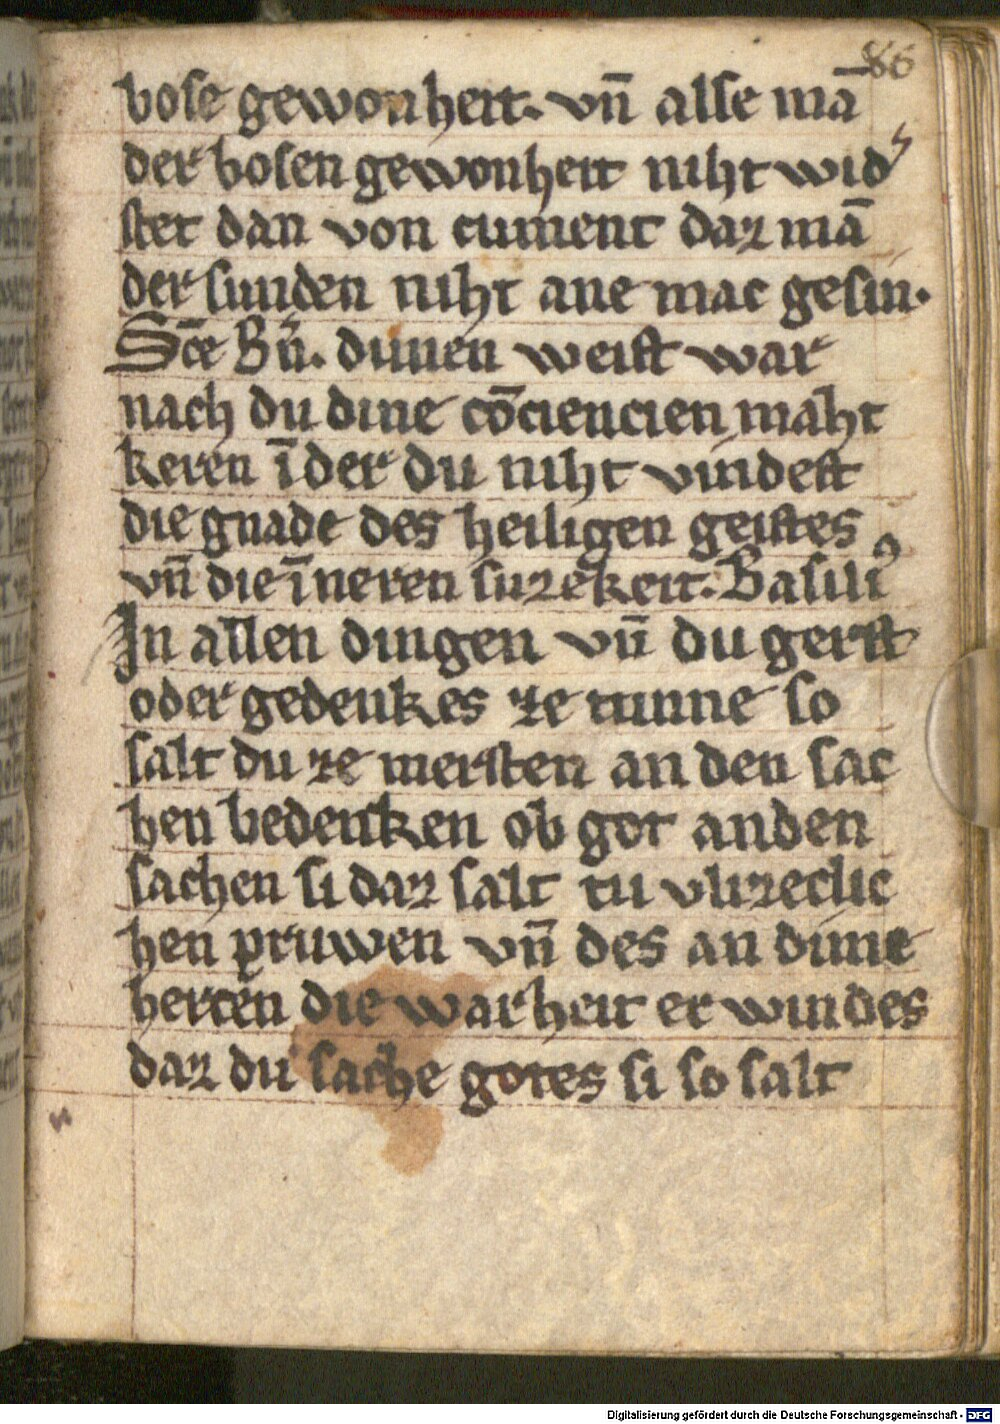 86
bose gewonheit. vn̄ alse mā
der bosen gewonheit niht wid'
stet dan von cument daz mā
der sunden niht ane mac gesin.
Sc̄e Bn̄. dunen weist war
nach du dine cōciencien maht
keren ī der du niht vindest
die gnade des heiligen geistes
vn̄ die īneren suzekeit. Basiliꝰ
In allen dingen vn̄ du gerst
oder gedenkes ze tunne so
salt du ze mersten an den sac
hen bedenken ob got an den
sachen si daz salt tu vlizeclic
hen pruwen vn̄ des an dime
hercen die warheit er windes
daz du sache gotes si so salt
Digitalisierung gefördert durch die Deutsche Forschungsgemeinschaft - DFG